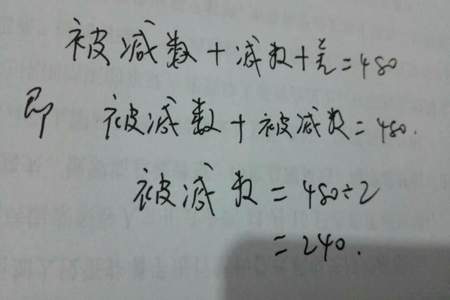 被减数+减数+差=480
即 被减数+被减数=480.
被减数=480÷2
=240.